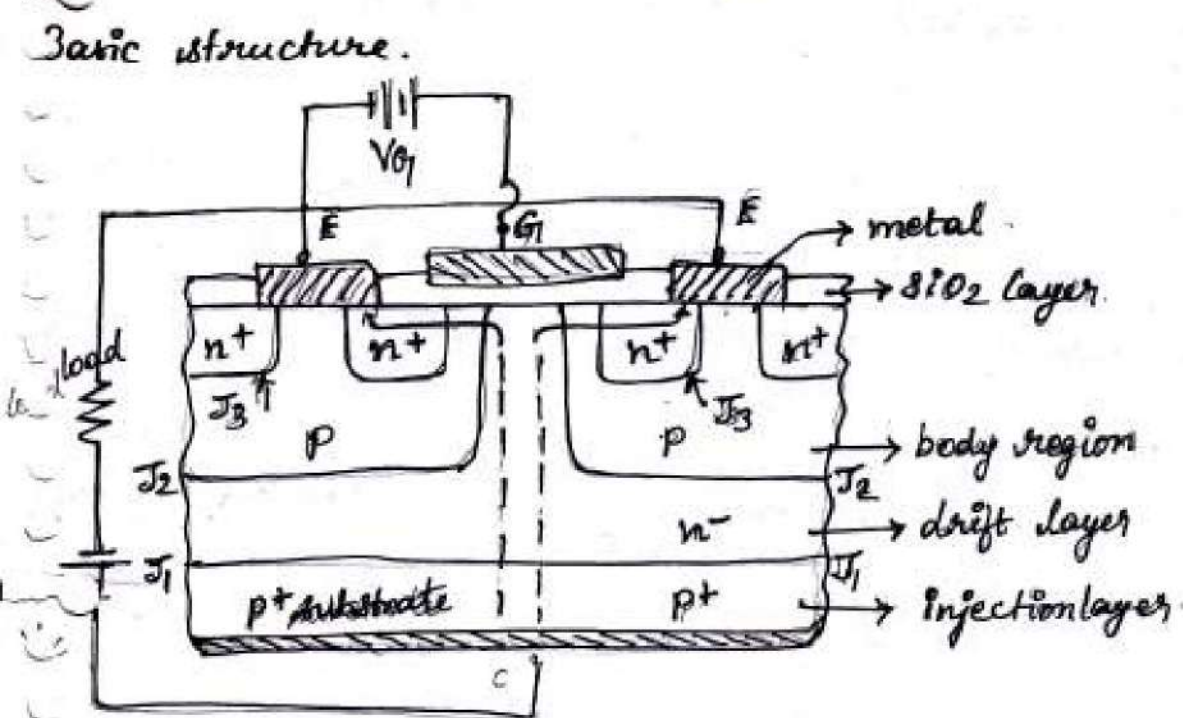 Basic structure.
VG
E
G
E
metal
SiO2 layer.
load
n+
n+
n+
n+
J3
J3
p
p
body region
J2
J2
n-
drift layer
J1
J1
p+ substrate
p+
injection layer
C